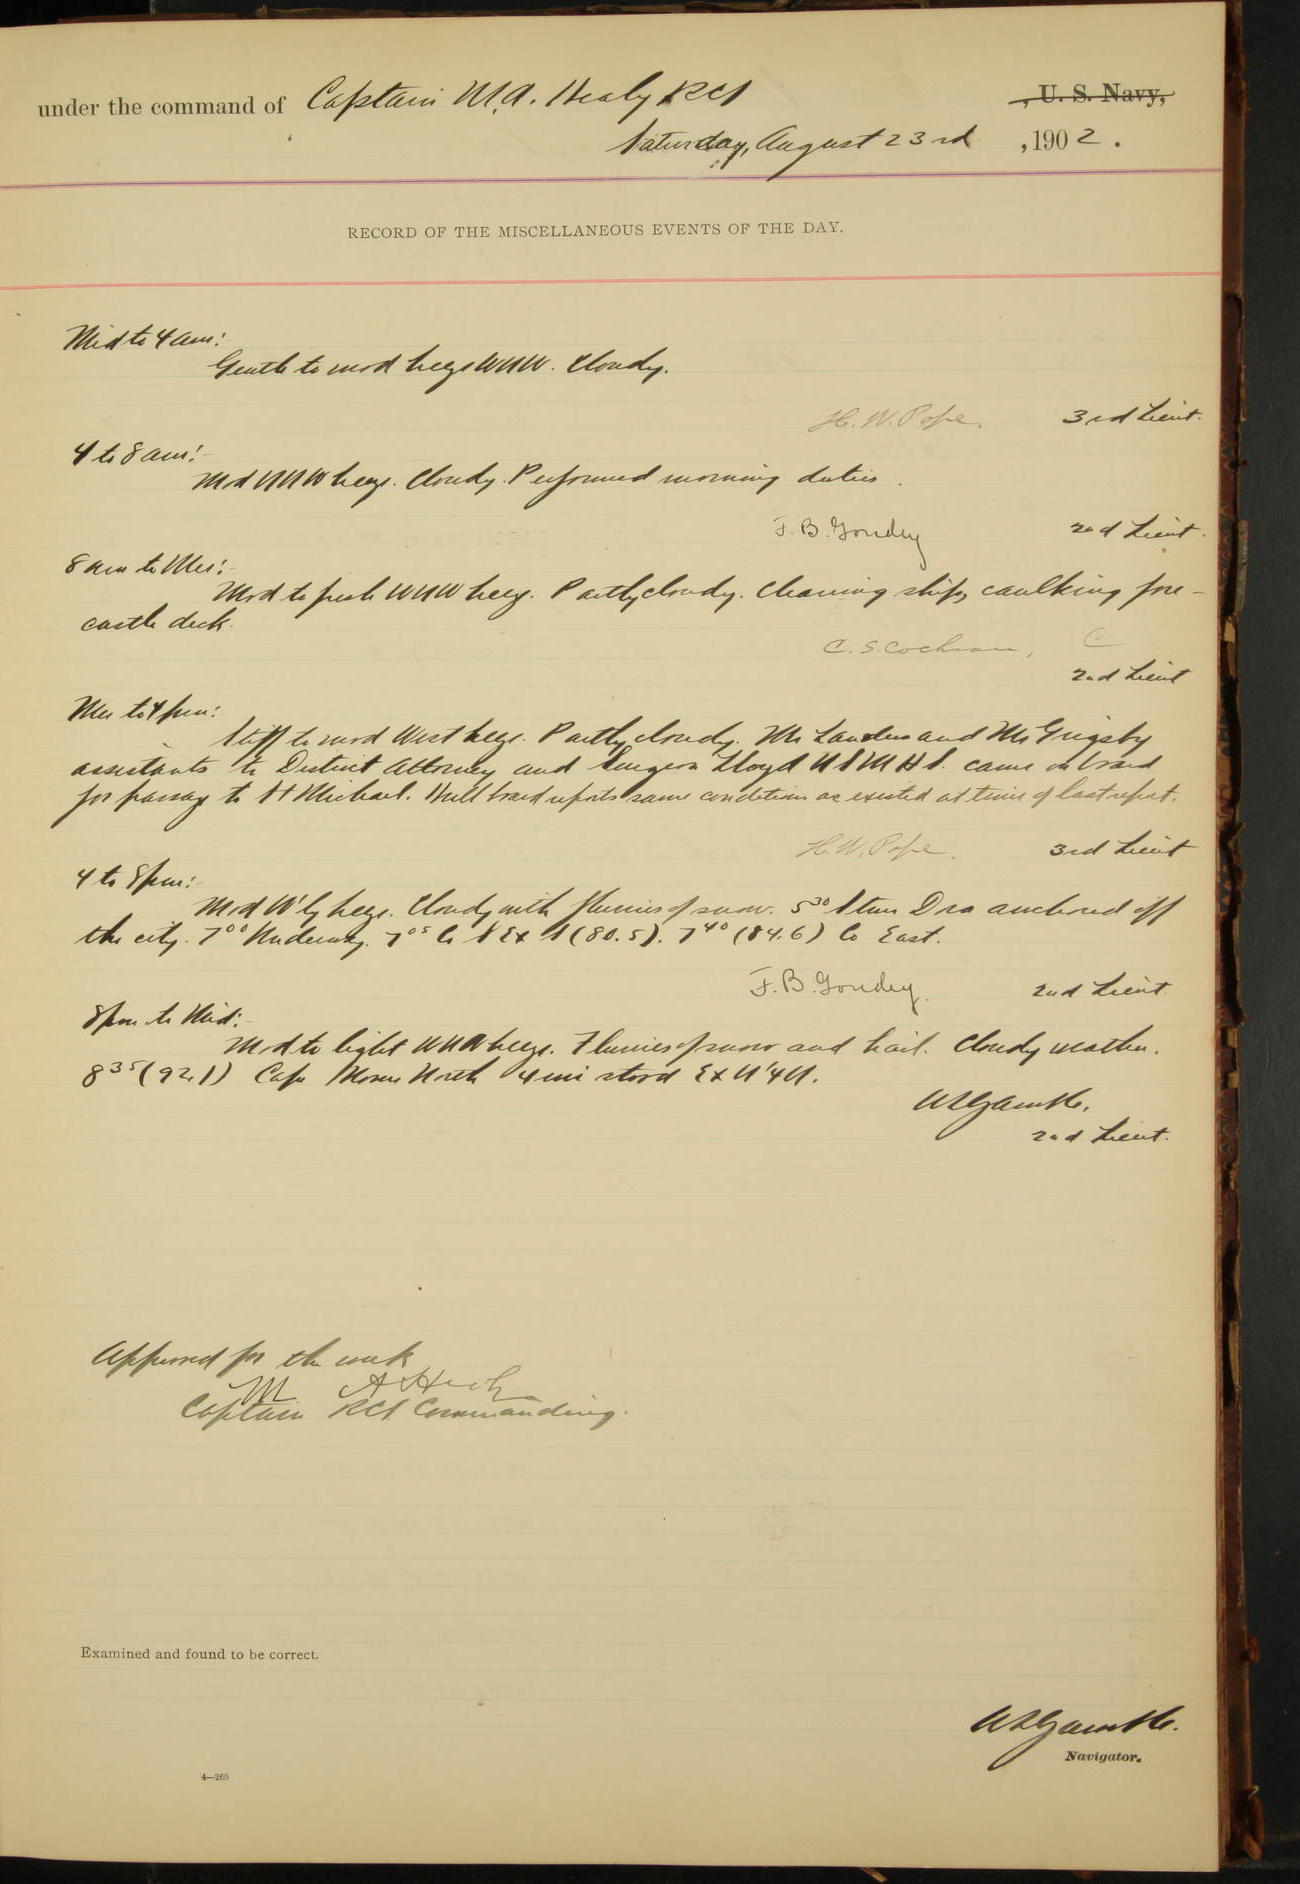 under the command of Captain M.A. Healy RCS , U. S. Navy,
Saturday, August 23rd , 1902.
RECORD OF THE MISCELLANEOUS EVENTS OF THE DAY.
Mid to 4 am:-
Gentle to mod breeze WNW. Cloudy.
H. W. Pope. 3rd Lieut.
4 to 8 am:-
Mod NNW breeze. Cloudy. Performed morning duties.
F. B. Goudey 2nd Lieut.
8 am to Mer:-
Mod to fresh WNW breeze. Partly cloudy. Cleaning ship, caulking fore-
castle deck.
C. S. Cochran, C
2nd Lieut
Mer to 4 pm:
Stiff to mod West breeze. Partly cloudy. Mr Landers and Mr Grigsby
assistants to District Attorney and Surgeon Lloyd USMHS. came on board
for passage to St Michael. Hull board reports same conditions as existed at time of last report.
H. W. Pope. 3rd Lieut
4 to 8 pm:-
Mod W'ly breeze. Cloudy with flurries of snow. 5 30 Stmr Dra anchored off
the city. 7 00 Underway. 7 05 Co SExS (80.5). 7 40 (84.6) Co East.
F. B. Goudey. 2nd Lieut.
8 pm to Mid:-
Mod to light WNW breeze. Flurries of snow and hail. Cloudy weather.
8 35 (92.1) Cape North 4 mi stood ExN¼N.
2nd Lieut.
Approved for the week
M A Healy
Captain RCS Commanding.
Examined and found to be correct.
Navigator.
4—265